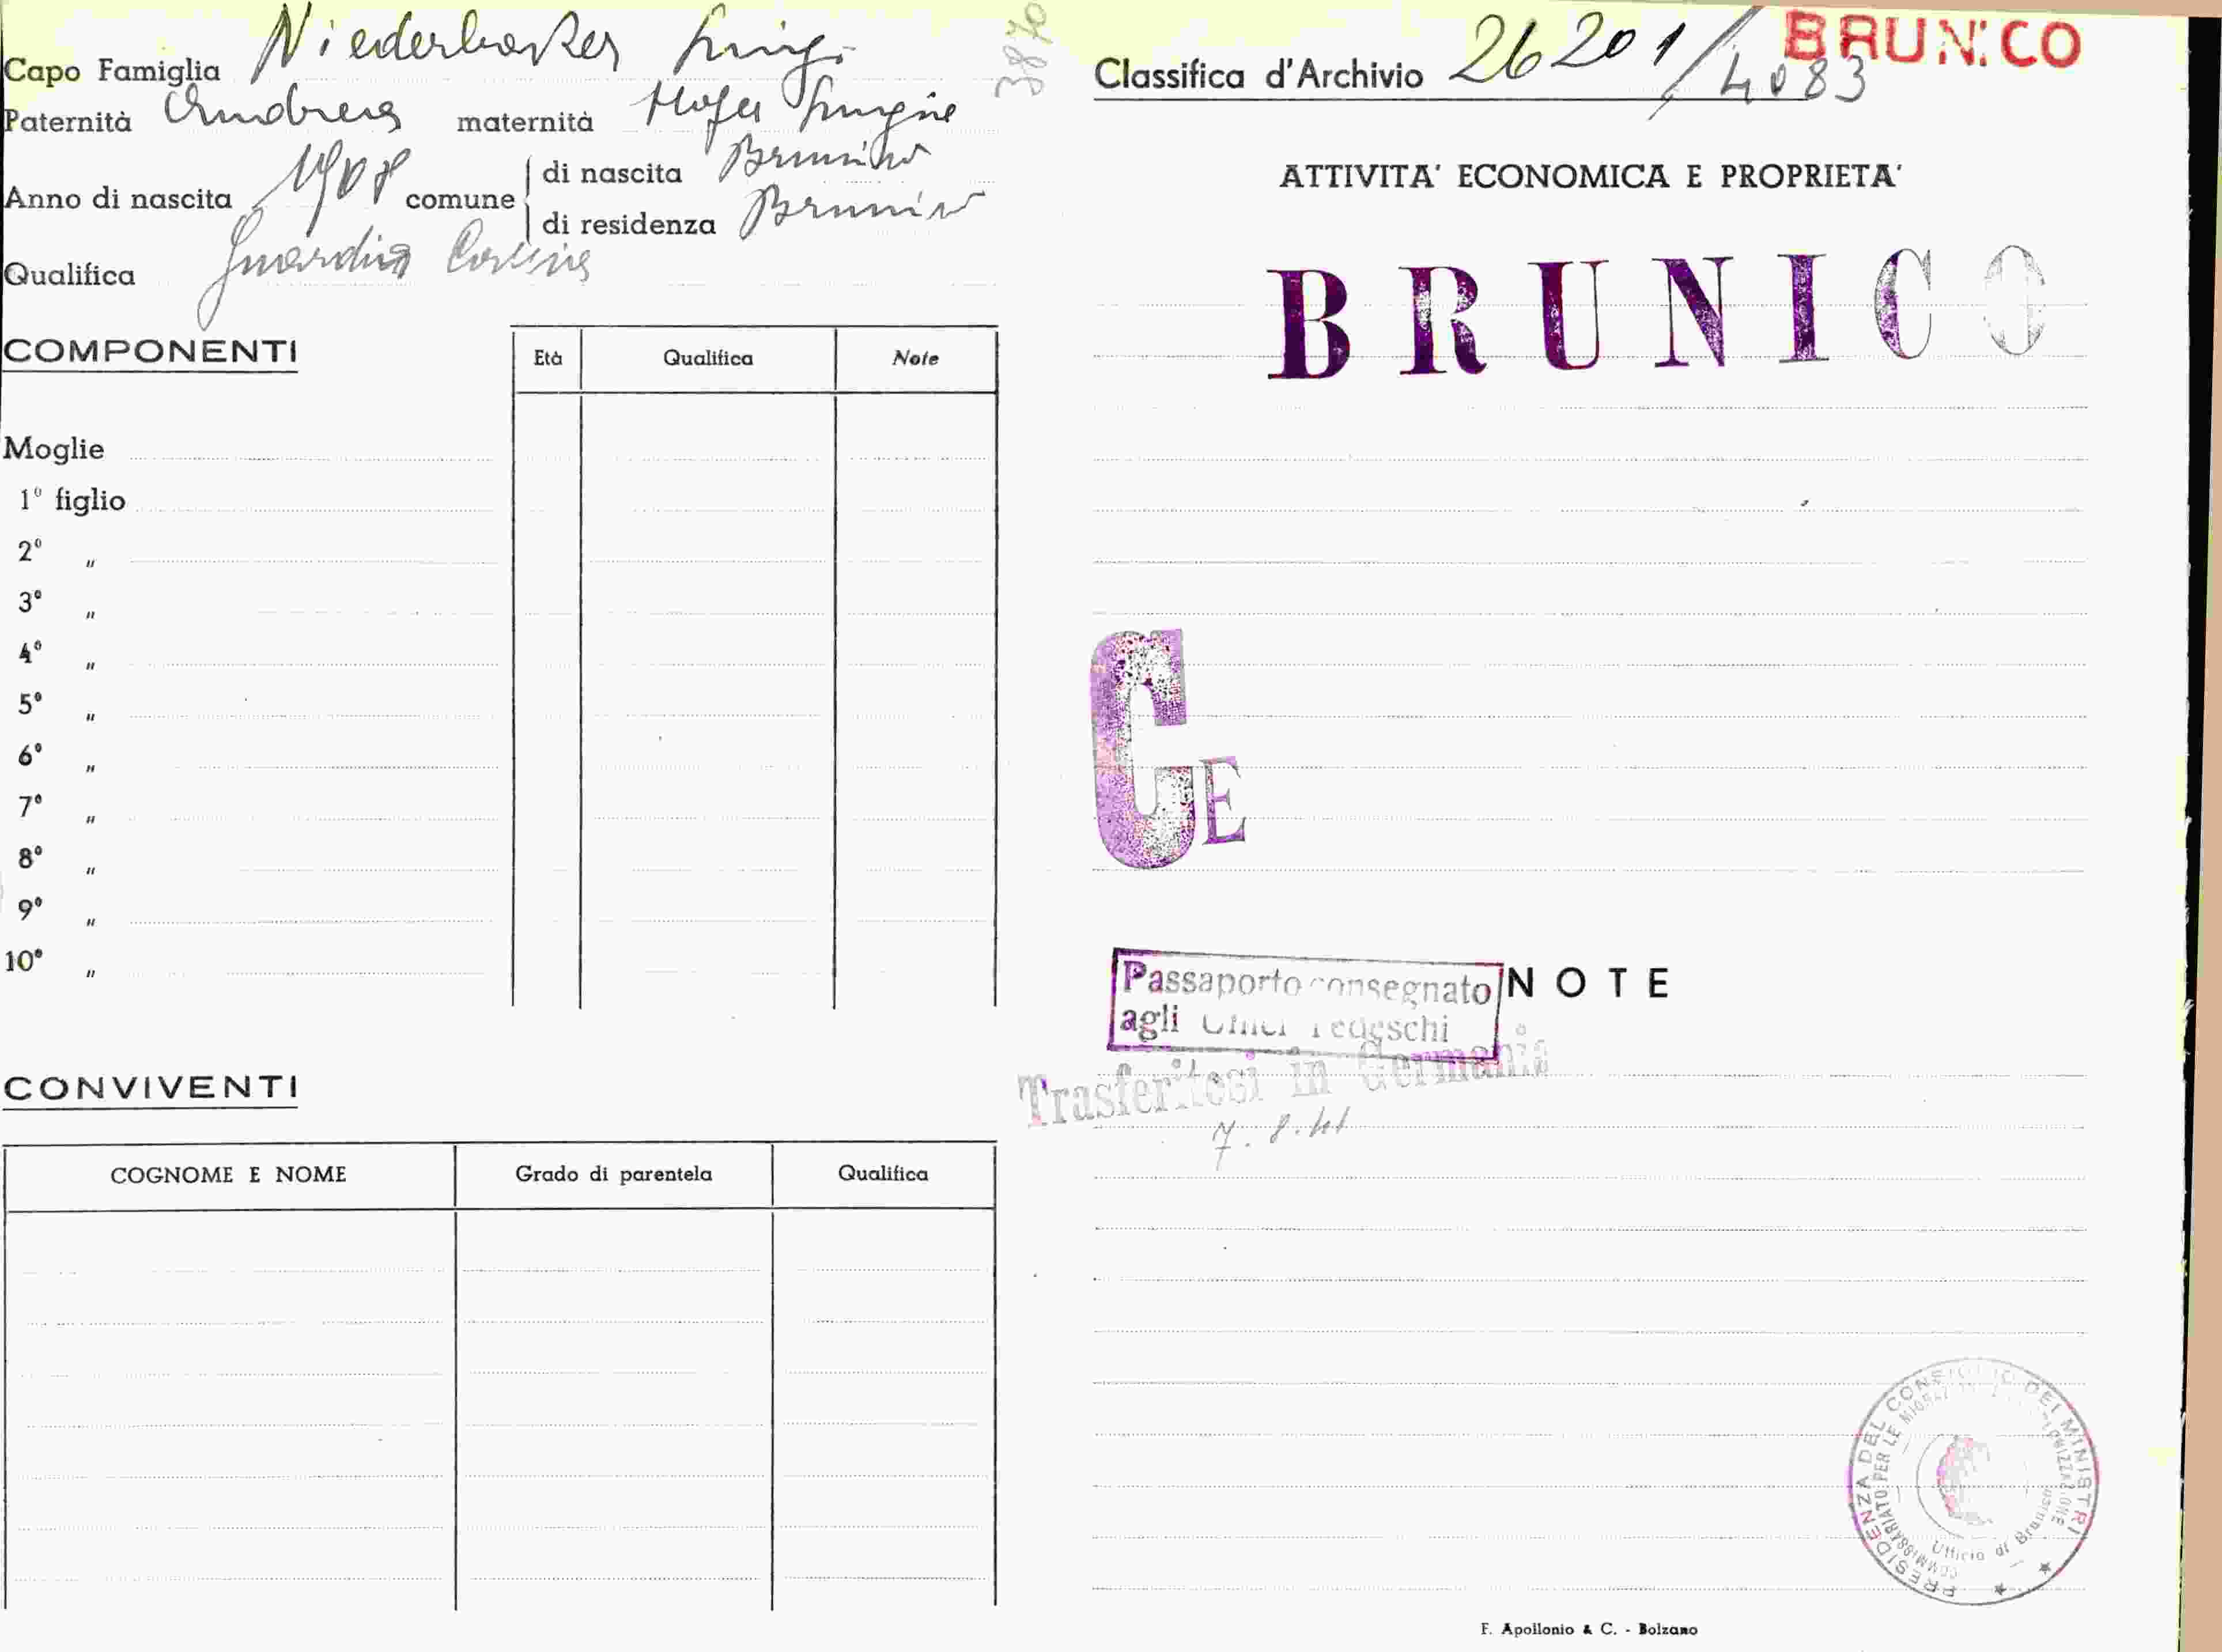 Capo Famiglia Niederbacher Luigi
Paternità Andrea maternità Hofer
Anno di nascita 1908 comune di nascita Brunico
di residenza Brunico
Qualifica Guardia
3870
COMPONENTI
Età Qualifica Note
Moglie
1º figlio
2º "
3º "
4º "
5º "
6º "
7º "
8º "
9º "
10º "
CONVIVENTI
COGNOME E NOME Grado di parentela Qualifica
BRUNICO
Classifica d'Archivio 26201/4083
ATTIVITA' ECONOMICA E PROPRIETA'
BRUNICO
CE
NOTE
Passaporto consegnato
agli Uffici Tedeschi
Trasferitosi in Germania
7.8.41
PRESIDENZA DEL CONSIGLIO DEI MINISTRI
COMMISSARIATO PER LE
Ufficio di Brunico
F. Apollonio & C. - Bolzano